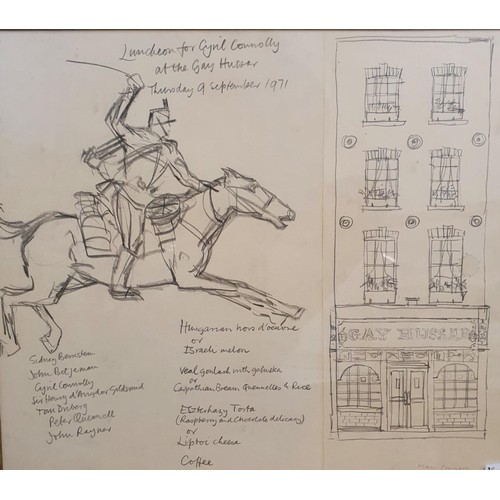 Luncheon for Cyril Connolly
at the Gay Hussar
Thursday 9 September 1971
GAY HUSSAR
Sidney Bernstein
John Betjeman
Cyril Connolly
Sir Henry d'Avigdor Goldsmid
Tom Driberg
Peter Quennell
John Rayner
Hungarian hors d'oeuvre
or
Israeli melon
Veal goulash with galuska
or
Carpathian Bream Quennelles & Rice
Eszterhazy Torta
(Raspberry and Chocolate delicacy)
or
Liptoi cheese
Coffee